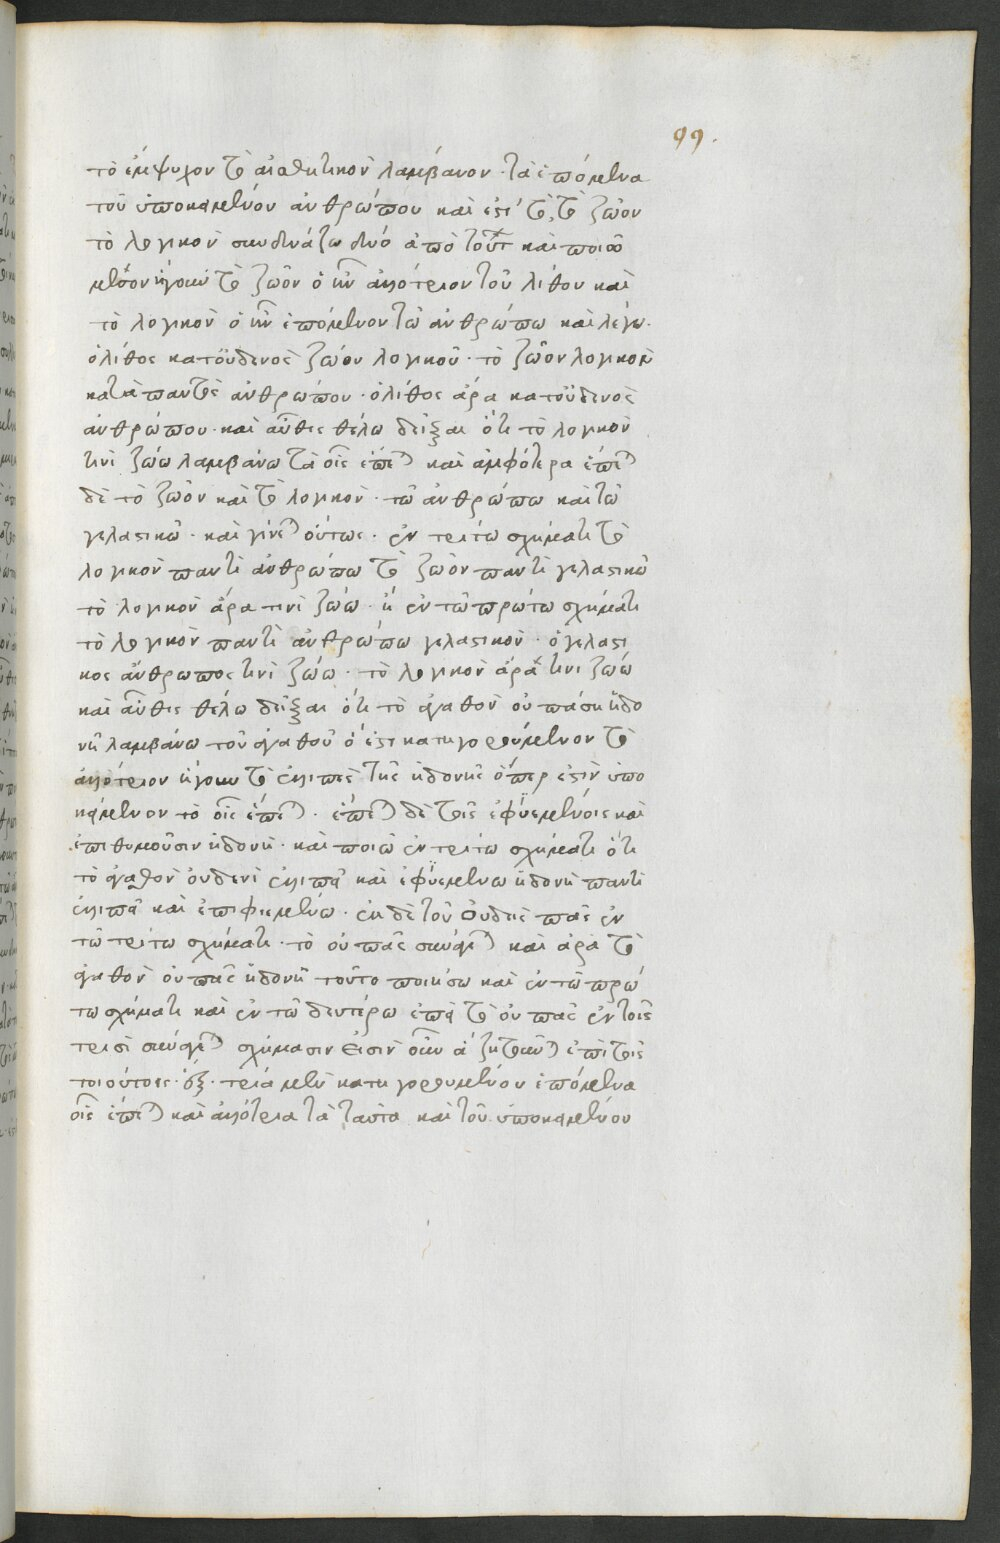 99.
τὸ ἔμψυχον τὸ αἰσθητικὸν λαμβάνον · τὰ ἑπόμενα
τοῦ ὑποκειμένου ἀνθρώπου καὶ ἐστὶ τὸ, τὸ ζῶον
τὸ λογικὸν συνδυάζω δυό ἀπὸ τούτ καὶ ποιῶ
μέσον ἤγουν τὸ ζῶον ὃ ἦν ἀλλότριον τοῦ λίθου καὶ
τὸ λογικὸν ὃ ἦν ἑπόμενον τῶ ἀνθρώπω καὶ λέγω ·
ὁ λίθος κατ' οὐδενὸς ζώου λογικοῦ · τὸ ζῶον λογικὸν
κατὰ παντὸς ἀνθρώπου · ὁ λίθος ἄρα κατ' οὐδενὸς
ἀνθρώπου · καὶ αὖθις θέλω δεῖξαι ὅτι τὸ λογικὸν
τινὶ ζώω λαμβάνω τὰ οἷς ἕπε) καὶ ἀμφότερα ἕπε)
δὲ τὸ ζῶον καὶ τὸ λογικὸν · τῶ ἀνθρώπω καὶ τῶ
γελαστικῶ · καὶ γίνε) οὕτως · ἐν τρίτω σχήματι τὸ
λογικὸν παντὶ ἀνθρώπω τὸ ζῶον παντὶ γελαστικῶ
τὸ λογικὸν ἄρα τινὶ ζώω · ἢ ἐν τῶ πρώτω σχήματι
τὸ λογικὸν παντὶ ἀνθρώπω γελαστικὸν · ὁ γελαστι
κος ἄνθρωπος τινὶ ζώω · τὸ λογικὸν ἄρα τινι ζωώ
καὶ αὖθις θέλω δεῖξαι ὅτι τὸ ἀγαθὸν οὐ πάση ἡδο
νῆ λαμβάνω τοῦ ἀγαθοῦ ὅ ἐστι κατηγορούμενον τὸ
ἀλλότριον ἤγουν τὸ ἐλλιπὲς τῆς ἡδονῆς ὅπερ ἐστὶν ὑπο
κείμενον τὸ οἷς ἕπε) · ἕπε) δὲ τοῖς ἐφϊεμένοις καὶ
ἐπιθυμοῦσιν ἡδονὴ · καὶ ποιῶ ἐν τρίτω σχήματι ὅτι
τὸ ἀγαθὸν οὐδενὶ ἐλλιπεῖ καὶ ἐφϊεμένω ἡδονὴ παντὶ
ἐλλιπεῖ καὶ ἐπιφιεμένω · ἐκ δὲ τοῦ οὐδεὶς πᾶς ἐν
τῶ τρίτω σχήματι · τὸ οὐ πᾶς συνάγε) καὶ ἄρα τὸ
ἀγαθὸν οὐ πᾶς ἡδονὴ τοῦτο ποιήσω καὶ ἐν τῶ πρώ
τω σχήματι καὶ ἐν τῶ δευτέρω ἐπεὶ τὸ οὐ πᾶς ἐν τοῖς
τρισὶ συνάγε) σχήμασιν εἰσὶν οὖν ἃ ζητοῦν) ἐπὶ τοῖς
τοιούτοις · ἕξ · τρία μὲν κατηγορουμένου ἑπόμενα
οἷς ἕπε) καὶ ἀλλότρια τὰ ταὐτὰ καὶ τοῦ ὑποκειμένου